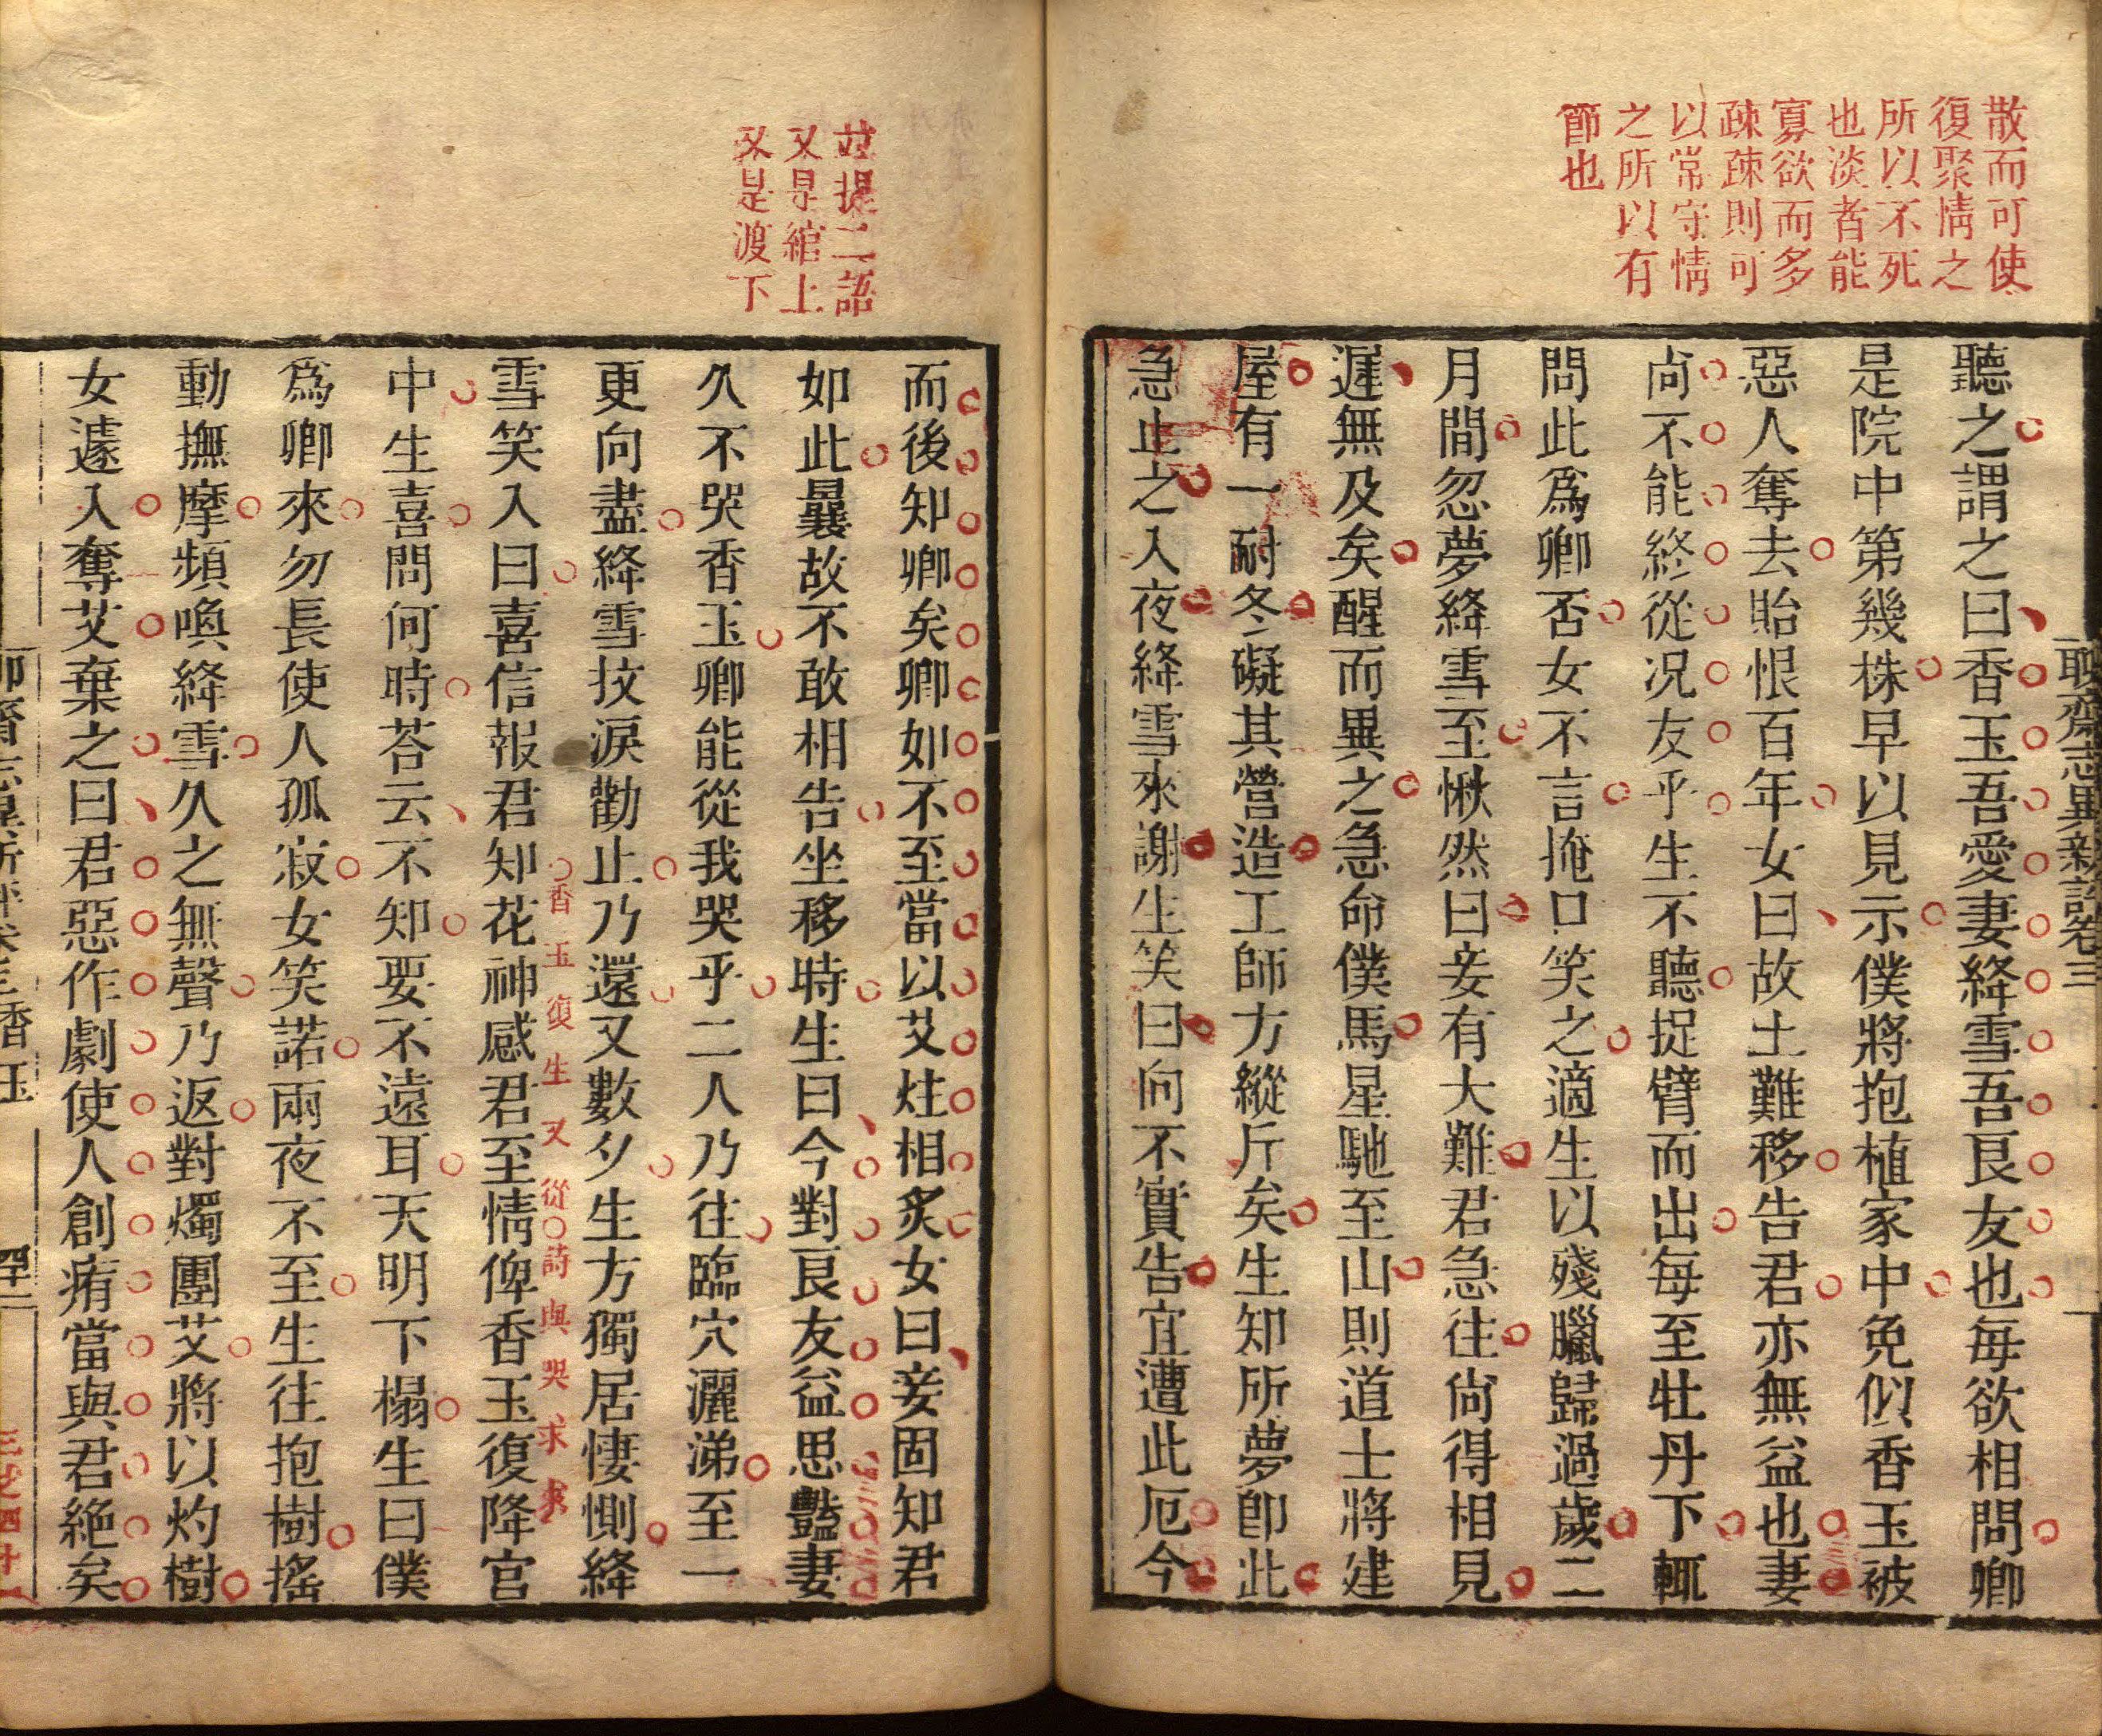 散而可使
復聚情之
所以不死
也淡者能
寡欲而多
疎疎則可
以常守情
之所以有
節也
聊齋志異新評卷三
聽之謂之曰香玉吾愛妻絳雪吾良友也每欲相問卿
是院中第幾株早以見示僕將抱植家中免似香玉被
惡人奪去貽恨百年女曰故土難移告君亦無益也妻
尙不能終從况友乎生不聽捉臂而出每至牡丹下輒
問此爲卿否女不言掩口笑之適生以殘臘歸過歲二
月間忽夢絳雪至愀然曰妾有大難君急往尙得相見
遲無及矣醒而異之急命僕馬星馳至山則道士將建
屋有一耐冬礙其營造工師方縱斤矣生知所夢卽此
急止之入夜絳雪來謝生笑曰向不實告宜遭此厄今
並提二語
又是綰上
又是渡下
而後知卿矣卿如不至當以艾炷相炙女曰妾固知君
如此曩故不敢相告坐移時生曰今對良友益思豔妻
久不哭香玉卿能從我哭乎二人乃往臨穴灑涕至一
更向盡絳雪抆淚勸止乃還又數夕生方獨居悽惻絳
香玉復生又從詩與哭求來
雪笑入曰喜信報君知花神感君至情俾香玉復降宮
中生喜問何時荅云不知要不遠耳天明下榻生曰僕
爲卿來勿長使人孤寂女笑諾兩夜不至生往抱樹搖
動撫摩頻喚絳雪久之無聲乃返對燭團艾將以灼樹
女遽入奪艾棄之曰君惡作劇使人創痏當與君絕矣
聊齋志異新評卷三香玉